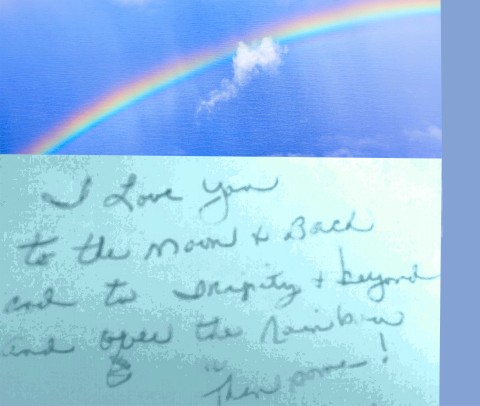 I Love you
to the moon & Back
and to Infinity + beyond
and over the Rainbow
& "Then some!